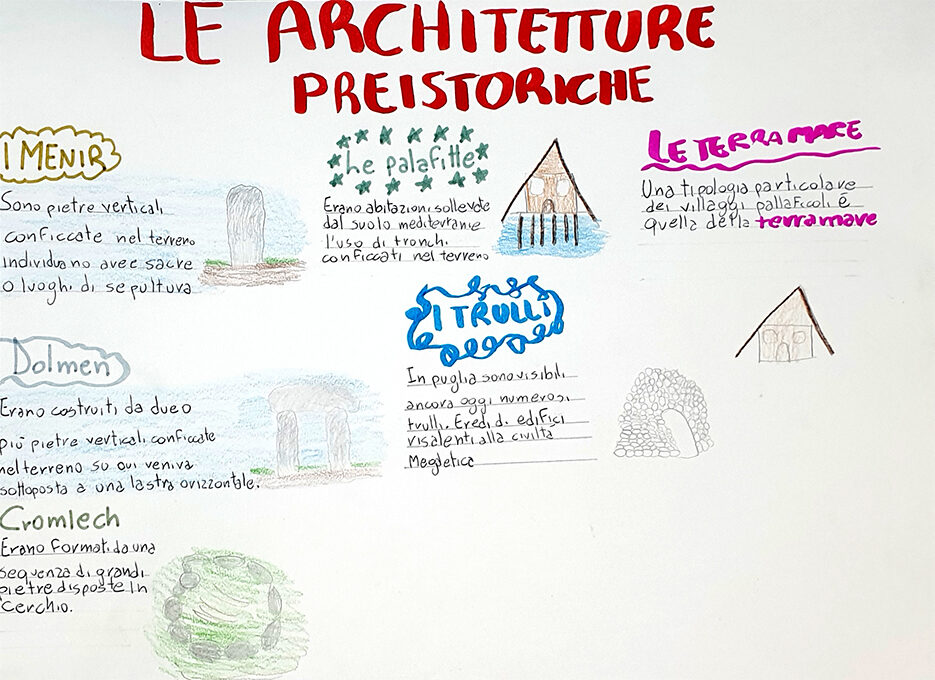 LE ARCHITETTURE
PREISTORICHE
I MENIR
Sono pietre verticali
conficcate nel terreno
individuano aree sacre
o luoghi di sepultura
Dolmen
Erano costruiti da due o
più pietre verticali conficcate
nel terreno su cui veniva
sottoposta a una lastra orizzontale.
Cromlech
Erano formati da una
sequenza di grandi
pietre disposte in
cerchio.
he palafitte
Erano abitazioni sollevate
dal suolo mediteranie
l'uso di tronchi
conficcati nel terreno
I TRULLI
In puglia sono visibili
ancora oggi numerosi
trulli. Eredi di edifici
risalenti alla civiltà
Megletica
LE TERRAMARE
Una tipologia particolare
dei villaggi pallaficoli é
quella della terramare